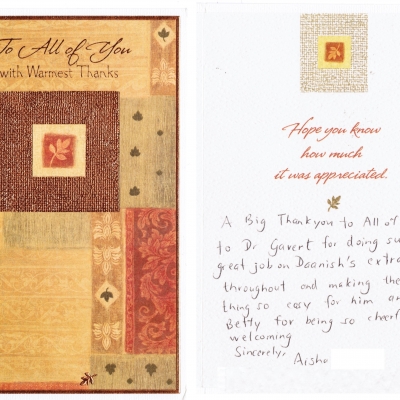 To All of You
with Warmest Thanks
Hope you know
how much
it was appreciated.
A Big Thankyou to All of
to Dr Gavert for doing su
great job on Daanish's extra
throughout and making the
thing so easy for him an
Betty for being so cheerf
welcoming
Sincerely,
Aisha